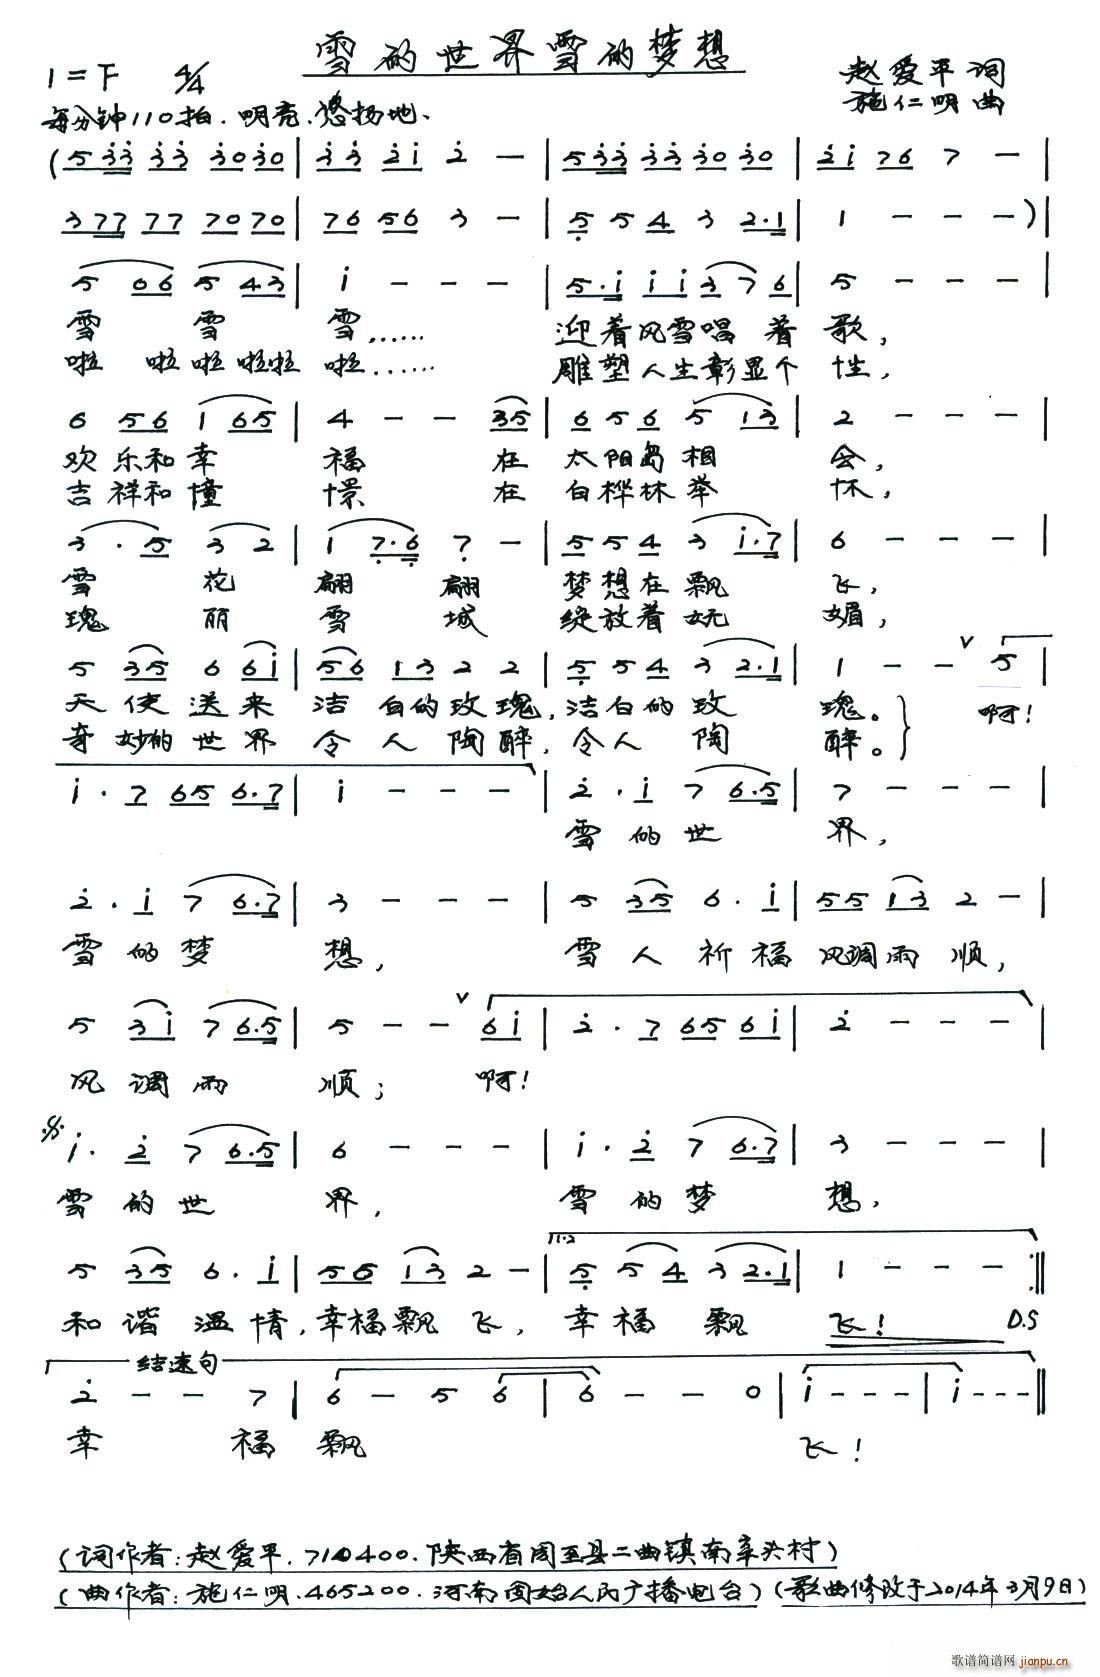 雪的世界雪的梦想
1=F 4/4
赵爱平 词
施仁明 曲
每分钟110拍.明亮.悠扬地、
(5 3 3 3 3 3 0 3 0 | 3 3 2 1 2 - | 5 3 3 3 3 3 0 3 0 | 2 1 7 6 7 - |
3 7 7 7 7 7 0 7 0 | 7 6 5 6 3 - | 5 5 4 3 2·1 | 1 - - - )|
5 0 6 5 4 3 | i - - - | 5·i i i 3 7 6 | 5 - - - |
雪 雪 雪…… 迎着风雪唱 着 歌,
啦 啦啦啦啦 啦…… 雕塑人生彰显个 性,
6 5 6 1 6 5 | 4 - - 3 5 | 6 5 6 5 1 3 | 2 - - - |
欢乐和幸 福 在 太阳岛相 会,
吉祥和憧 憬 在 白桦林举 怀,
3 · 5 3 2 | 1 7·6 7 - | 5 5 4 3 i·7 | 6 - - - |
雪 花 翩 翩 梦想在飘 飞,
瑰 丽 雪 城 绽放着妩 媚,
5 3 5 6 6 i | 5 6 1 3 2 2 | 5 5 4 3 2·1 | 1 - - V 5 |
天使送来 洁白的玫瑰,洁白的玫 瑰。 啊!
奇妙的世界 令人陶醉,令人陶 醉。
i · 7 6 5 6·7 | i - - - | 2 · i 7 6·5 | 7 - - - |
雪的世 界,
2 · i 7 6·7 | 3 - - - | 5 3 5 6 · i | 5 5 1 3 2 - |
雪的梦 想, 雪人祈福风调雨顺,
5 3 i 7 6·5 | 5 - - V 6 i | 2 · 7 6 5 6 i | 2 - - - |
风调雨 顺; 啊!
i · 2 7 6·5 | 6 - - - | i · 2 7 6·7 | 3 - - - |
雪的世 界, 雪的梦 想,
11.2
5 3 5 6 · i | 5 5 1 3 2 - | 5 5 4 3 2·1 | 1 - - - :||
和谐温情,幸福飘飞, 幸福 飘 飞! D.S
结速句
2 - - 7 | 6 - 5 6 | 6 - - 0 | i - - - | i - - - ||
幸 福 飘 飞!
(词作者:赵爱平.710400.陕西省周至县二曲镇南辛头村)
(曲作者:施仁明.465200.河南固始人民广播电台)(歌曲修改于2014年3月9日)
歌谱简谱网 jianpu.cn